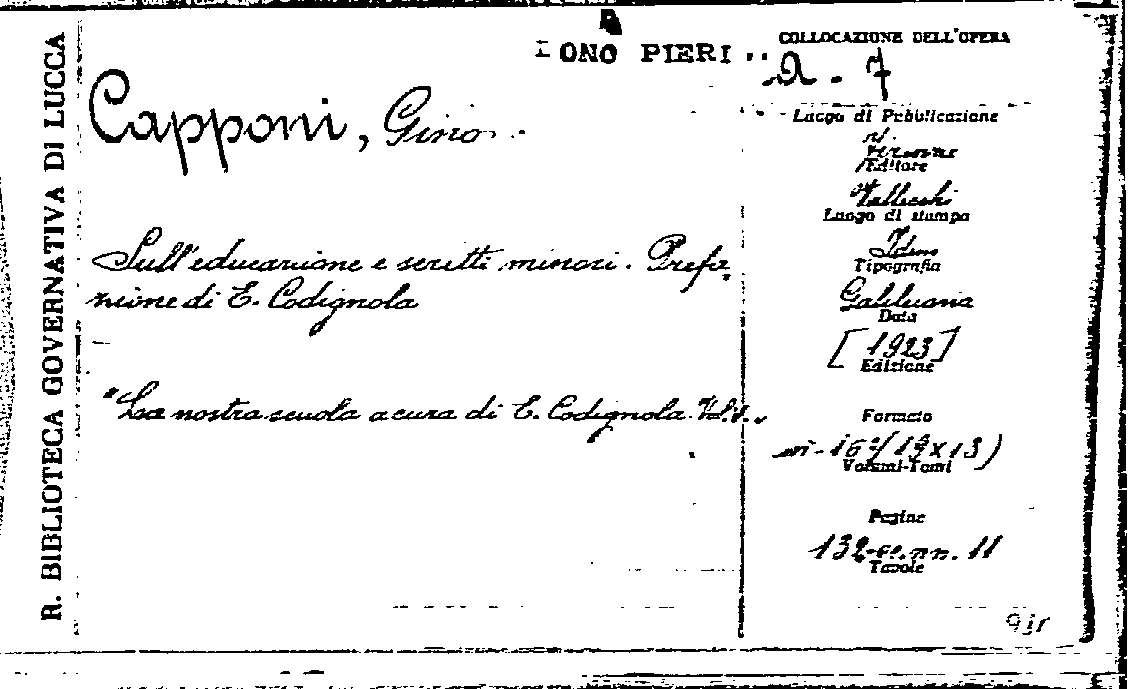 R. BIBLIOTECA GOVERNATIVA DI LUCCA
ONO PIERI
COLLOCAZIONE DELL'OPERA
A - 7
Capponi, Gino
Luogo di Pubblicazione
Firenze
Editore
Vallecchi
Luogo di stampa
Idem
Tipografia
Sull'educazione e scritti minori. Prefa
zione di E. Codignola
Galileiana
Data
[1923]
Edizione
"La nostra scuola a cura di E. Codignola.
Formato
in-16°(19x13)
Volumi-Tomi
Pagine
132-cc.nn. II
Tavole